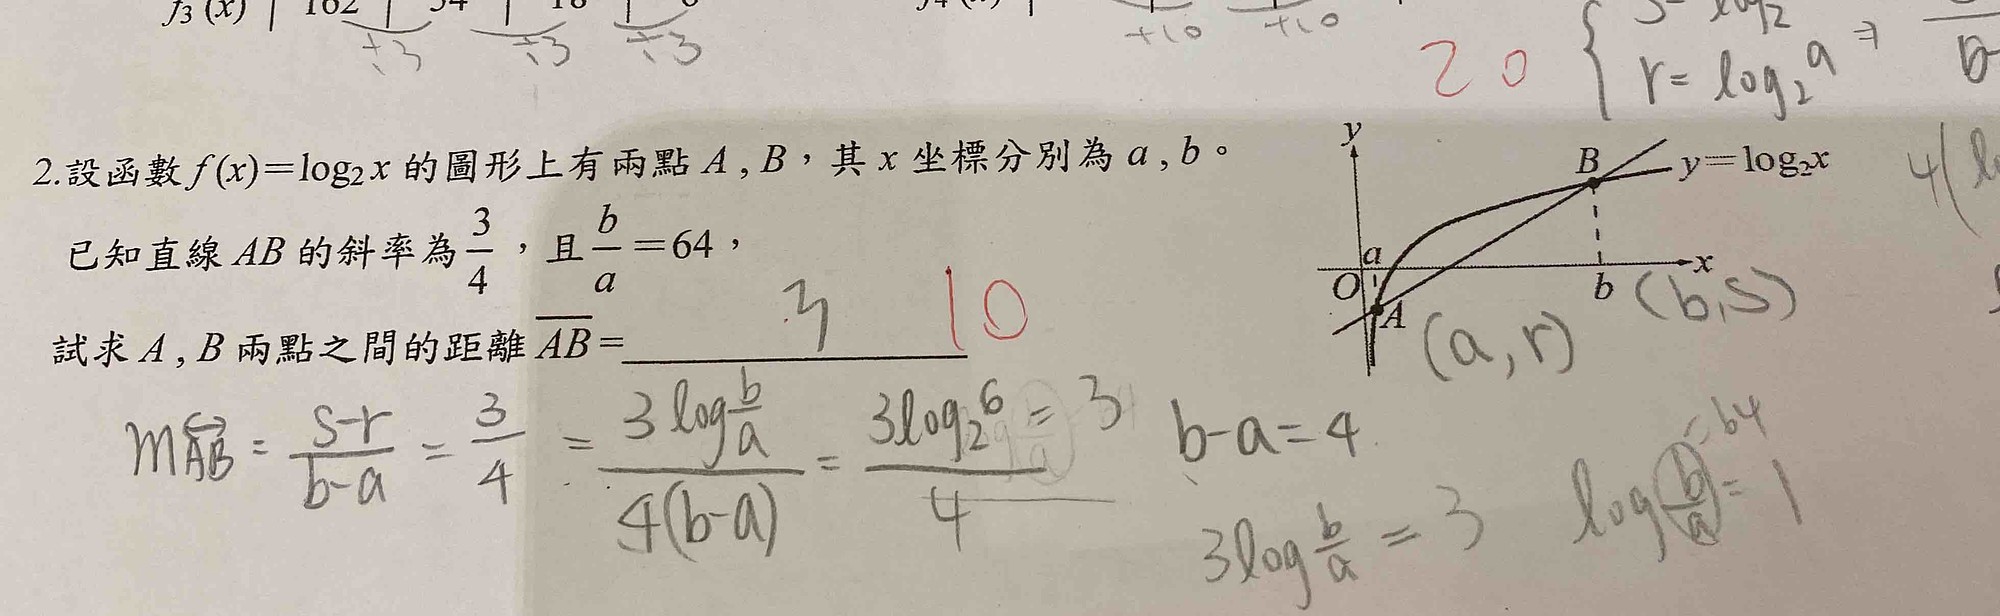 f₃(x) 162 54 18 6
÷3 ÷3 ÷3 +10 +10
20
r = log₂a ⇒
2.設函數 f(x)=log₂x 的圖形上有兩點 A , B,其 x 坐標分別為 a , b。
已知直線 AB 的斜率為 3/4,且 b/a = 64,
試求 A , B 兩點之間的距離 AB = 3 10
y
B y=log₂x
a
O b x
A
(a, r) (b, s)
mAB = (s-r)/(b-a) = 3/4 = 3log(b/a)/4(b-a) = 3log₂6/4 = 3
b-a=4
3log b/a = 3
log(b/a) = 1
=64